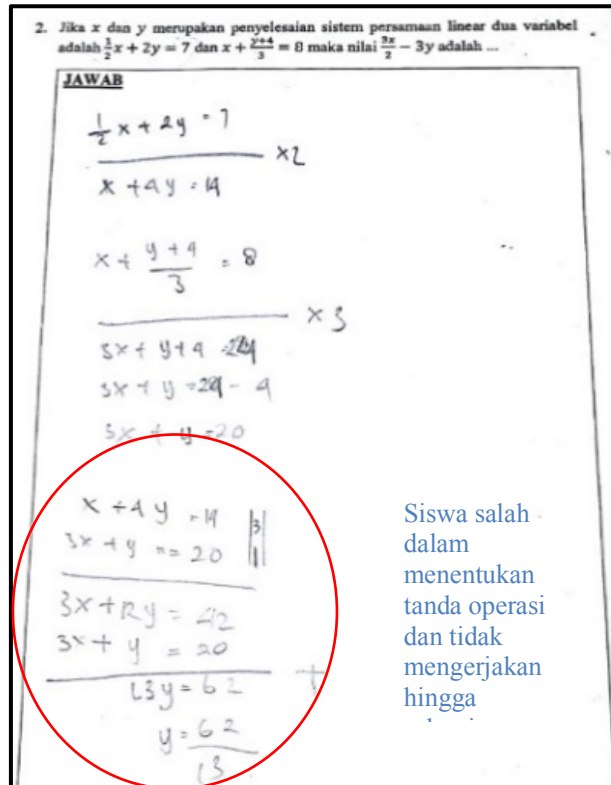 2. Jika x dan y merupakan penyelesaian sistem persamaan linear dua variabel
adalah 1/2 x + 2y = 7 dan x + (y+4)/3 = 8 maka nilai 3x/2 − 3y adalah ...
JAWAB
1/2 x + 2y = 7
×2
x + 4y = 14
x + (y + 4)/3 = 8
× 3
3x + y + 4 = 24
3x + y = 24 - 4
3x + y = 20
x + 4y = 14 | 3 |
3x + y = = 20 | 1 |
3x + 12y = 42
3x + y = 20
+
13y = 62
y = 62/13
Siswa salah
dalam
menentukan
tanda operasi
dan tidak
mengerjakan
hingga